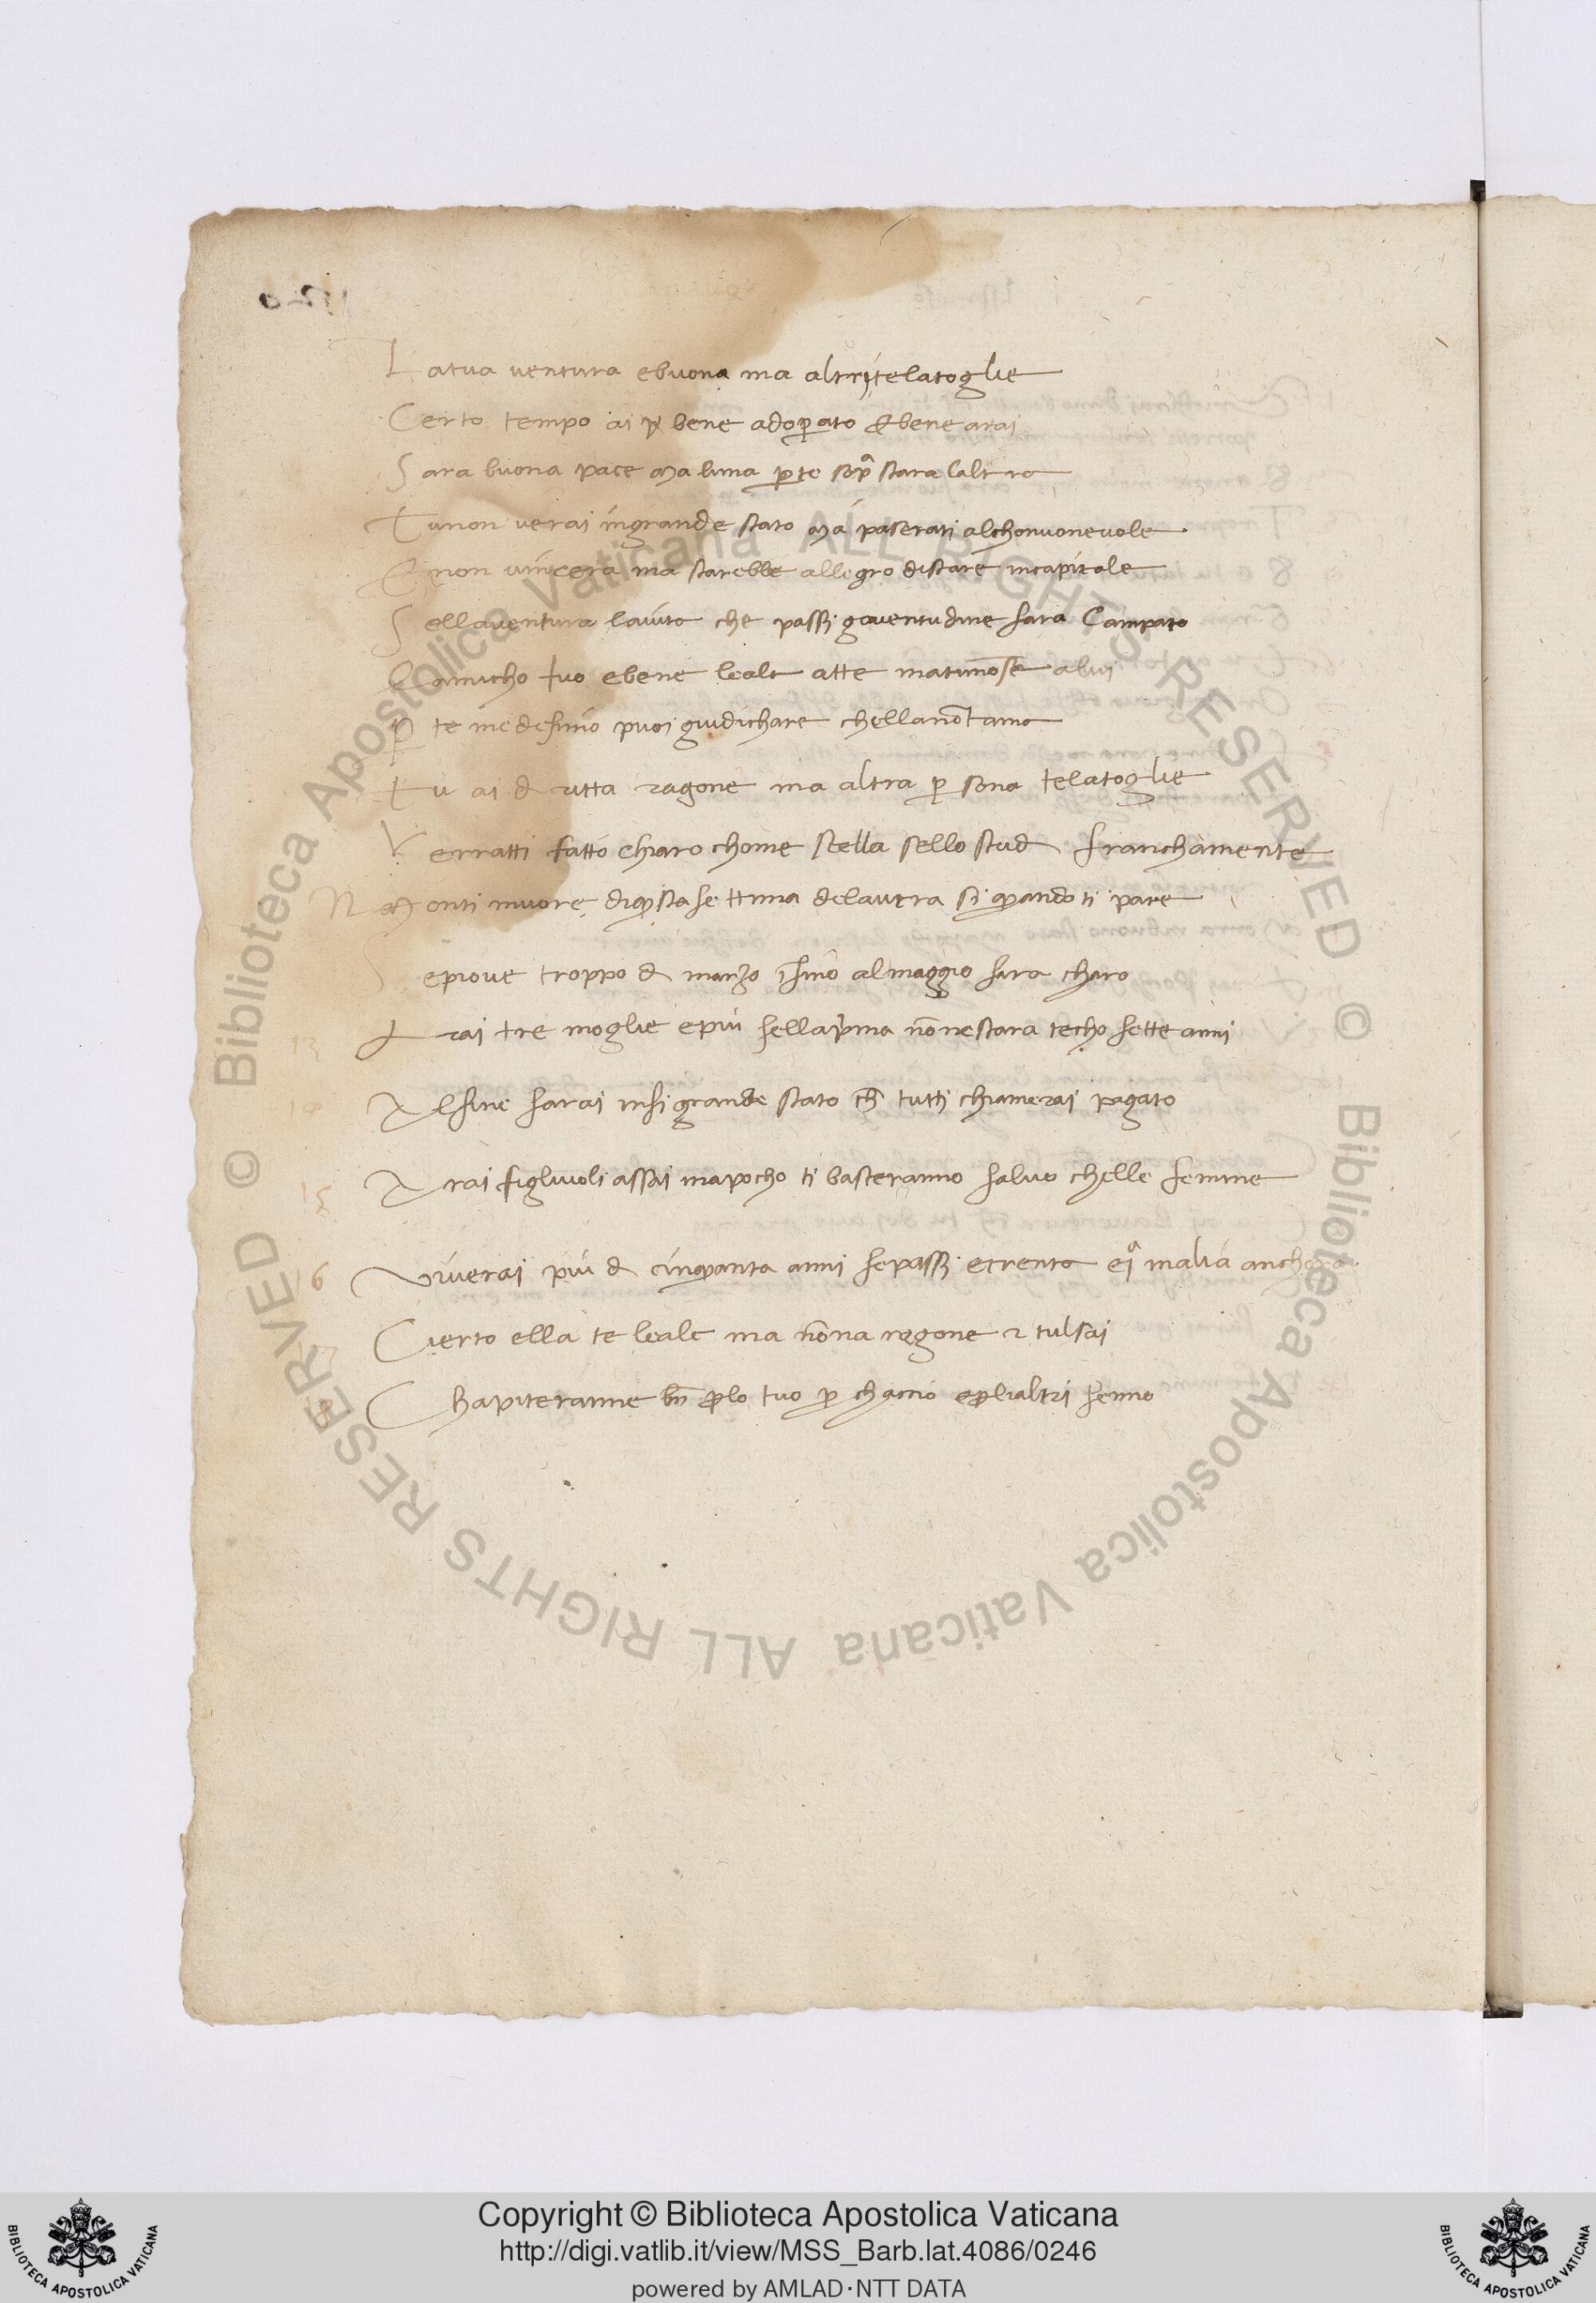 La tua ventura e buona ma altri telatoglie
Certo tempo ai ꝑ bene adoꝑato & bene arai
Sara buona pace ma luna ꝑte sopª stara laltro
Tunon verai ingrande stato ma paserati alchonvonevole
E non vincera ma starebbe allegro distare incapitale
Sellaventura laiuto che passi govenvudine sara Campato
Lamicho tuo ebene leale atte matunōse alui
ꝑ te medesimo puoi giudichare chellanōt amo
Tu ai d ritta ragone ma altra ꝑ sona telatoglie
Verratti fatto chiaro chome stella sello stud franchamente
N Monti muore diqsta settima delautra si qando ti pare
Sepiove troppo d marzo īsino almaggio sara charo
13 Arai tre moglie epiu sellapima nōnestara techo sette anni
14 Alfine sarai insi grande stato ch̄ tutti chiamerai pagato
15 Arai figluvoli assai mapocho ti basteranno salvo chelle femine
16 Viverai piu d cinqanta anni sepassi etrenta eiª malia anchora
17 Cierto ella te leale ma nōna ragone 2 tulsai
18 Chapiteranne bn̄ ꝑlo tuo ꝑ chaccio eꝑlialtri senno
Copyright © Biblioteca Apostolica Vaticana
http://digi.vatlib.it/view/MSS_Barb.lat.4086/0246
powered by AMLAD·NTT DATA
BIBLIOTECA APOSTOLICA VATICANA
BIBLIOTECA APOSTOLICA VATICANA
Biblioteca Apostolica Vaticana ALL RIGHTS RESERVED ©
Biblioteca Apostolica Vaticana ALL RIGHTS RESERVED ©